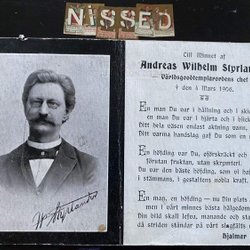 NISSED
Till Minnet af
Andreas Wilhelm Styrlan
Världsgodtemplarordens chef
† den 4 Mars 1906.
En man Du var i hållning och i ski
en man Du var i hjärta och i blick
Ditt bela väsen endast aktning vans,
Ditt varma handslag gaf Du som en
En höfding var Du, oförskräckt och
förutan fruktan, utan skrymteri.
Du var den enkle, som val kunnat ha
i stämmans, i gestaltens nobla kraft.
En man, en höfding — nu Din plats
men i vårt minnes bästa hälgedom
Din bild skall lefva, manande och sta
den strid, som stundar på vårt slagfält
hjalmar
W Styrlander